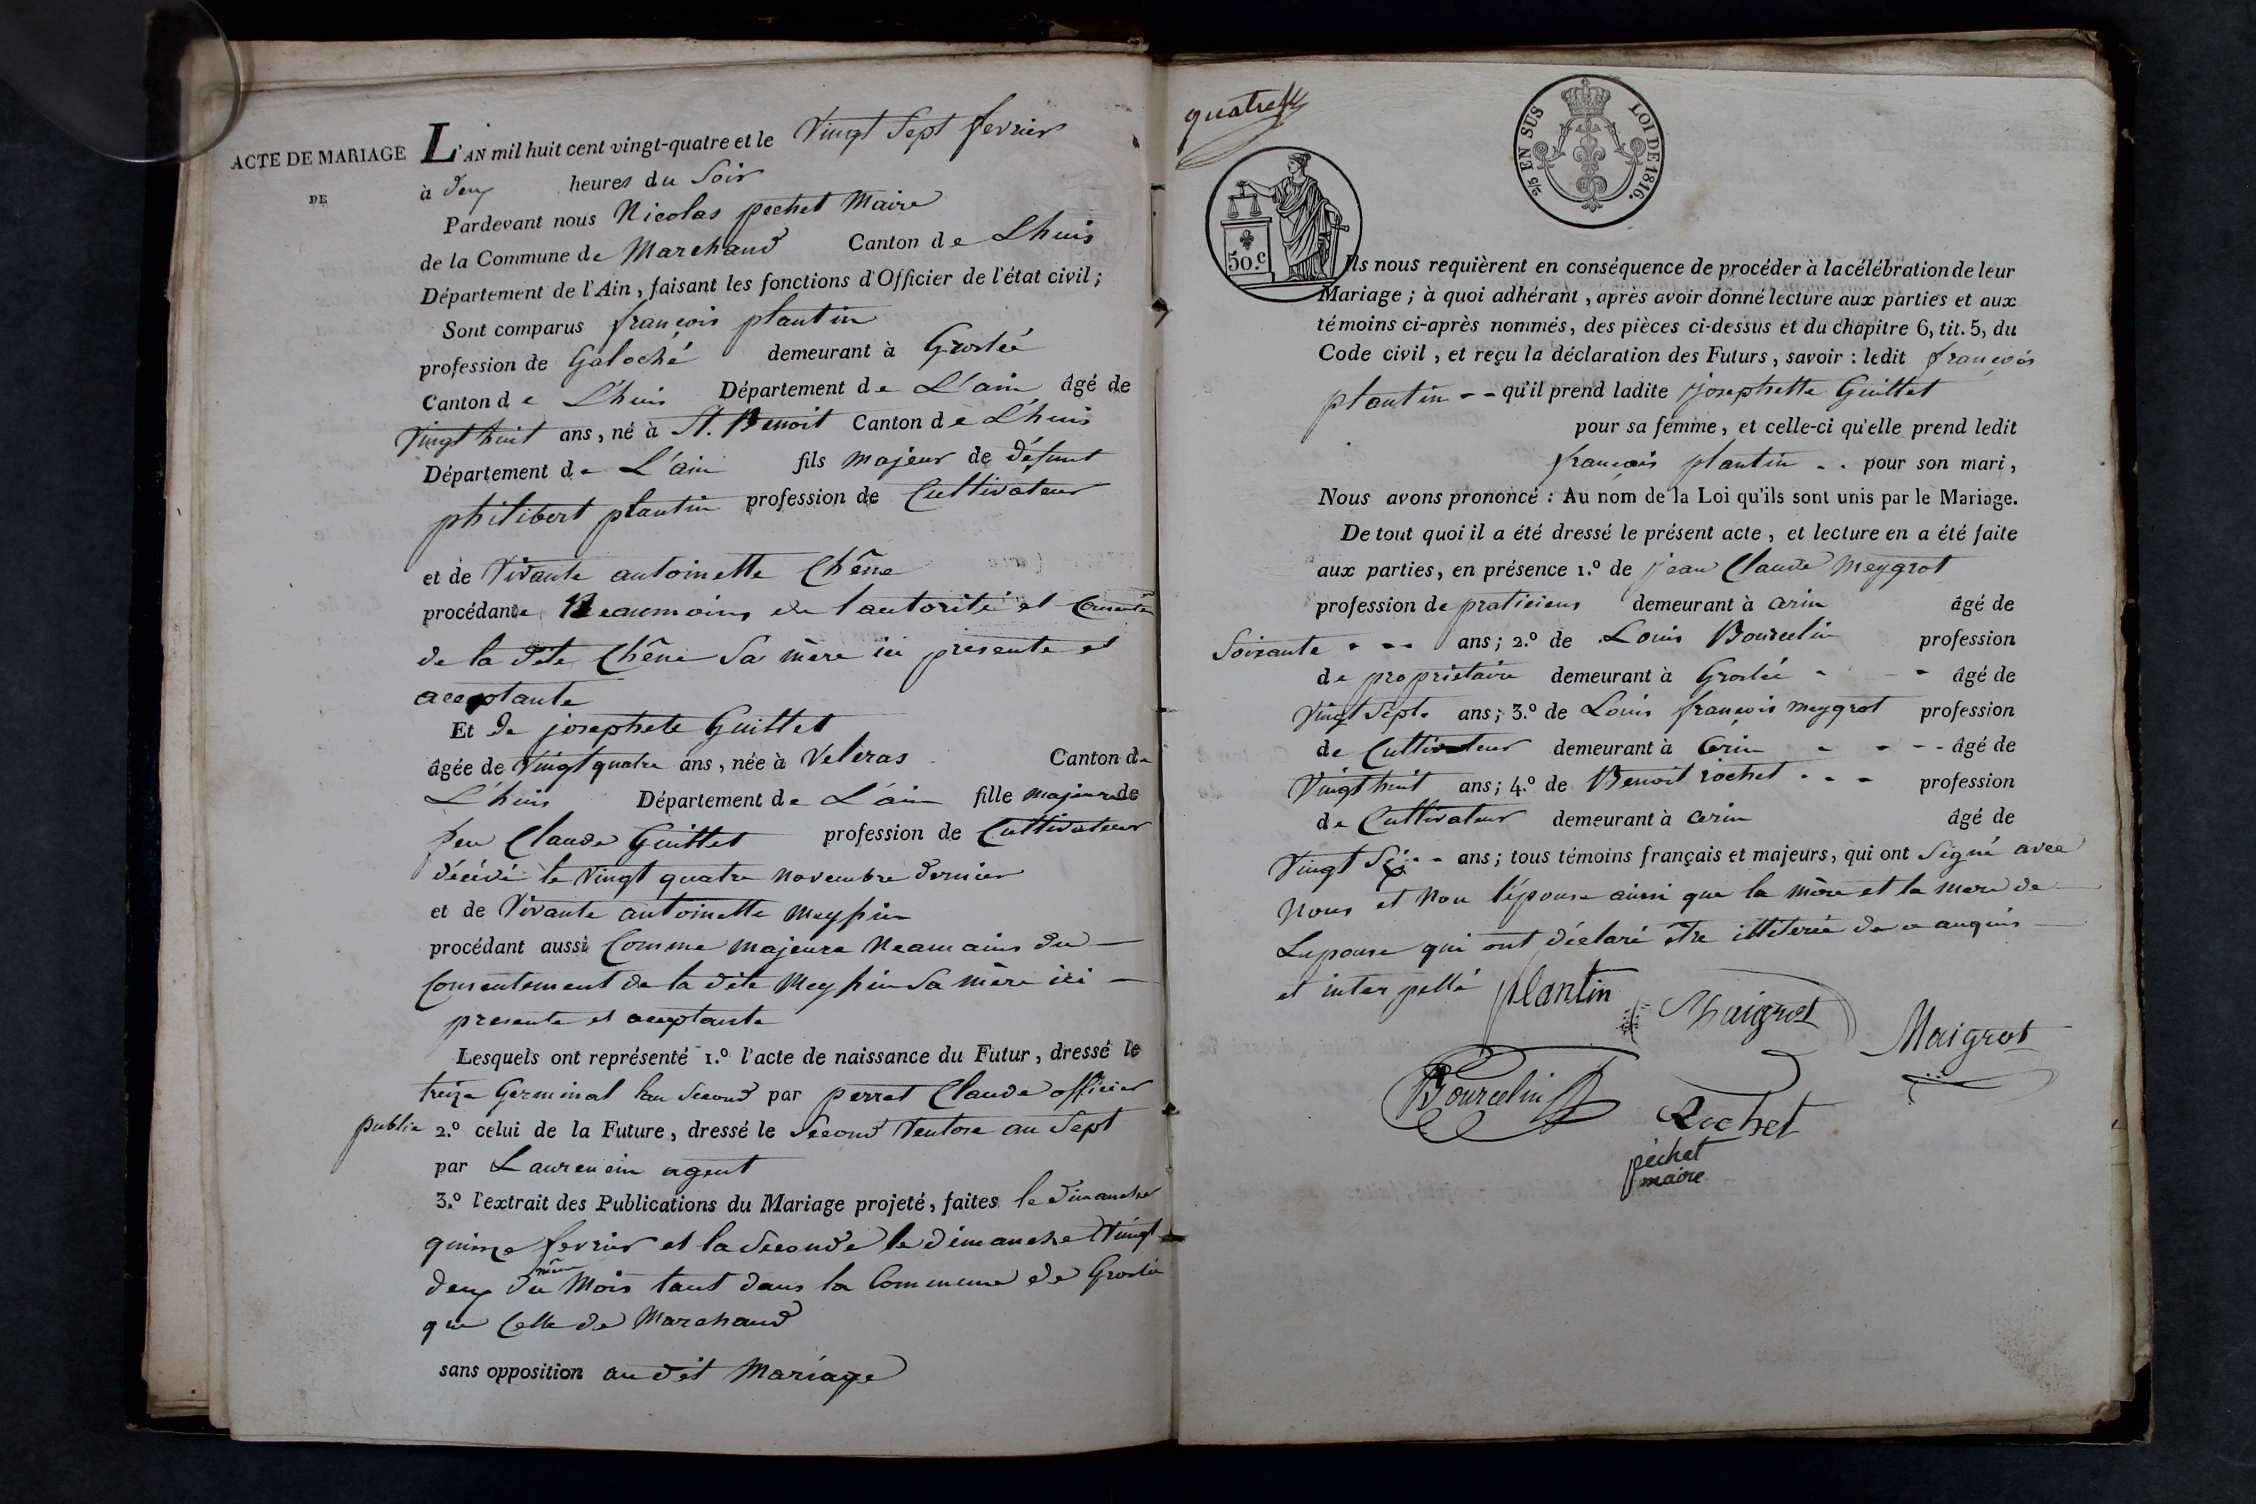 ACTE DE MARIAGE
DE
L'AN mil huit cent vingt-quatre et le Vingt Sept fevrier
à deux heures du Soir
Pardevant nous Nicolas pechet Maire
de la Commune de Marchand Canton de Lhuis
Département de l'Ain, faisant les fonctions d'Officier de l'état civil;
Sont comparus françois plantin
profession de Galoché demeurant à Groslée
Canton de L'huis Département de L'ain âgé de
Vingt huit ans, né à St. Benoit Canton de L'huis
Département de L'ain fils majeur de défunt
philibert plantin profession de Cultivateur
et de Vivante antoinette Chêne
procédante Neaumoins de l'autorité et
de la dite Chêne Sa mère ici presente et
acceptante
Et de josephete Guillet
âgée de Vingt quatre ans, née à Veleras Canton de
L'huis Département de L'ain fille majeure de
feu Claude Guillet profession de Cultivateur
décédé le Vingt quatre novembre dernier
et de Vivante antoinette
procédant aussi Comme majeure neamoins du
Consentement de la dite sa mère ici
presente et acceptante
Lesquels ont représenté 1.º l'acte de naissance du Futur, dressé le
treize Germinal l'an Second par perret Claude officier
public 2.º celui de la Future, dressé le Second Ventose an Sept
par Laurencin agent
3.º l'extrait des Publications du Mariage projeté, faites le dimanche
quinze fevrier et la Seconde le dimanche Vingt
deux du même Mois tant dans la Commune de Groslée
que Celle de Marchand
sans opposition au dit Mariage
quatre
2/5 EN SUS LOI DE 1816.
50.c
Ils nous requièrent en conséquence de procéder à la célébration de leur
Mariage; à quoi adhérant, après avoir donné lecture aux parties et aux
témoins ci-après nommés, des pièces ci-dessus et du chapitre 6, tit. 5, du
Code civil, et reçu la déclaration des Futurs, savoir: ledit françois
plantin -- qu'il prend ladite josephette Guillet
pour sa femme, et celle-ci qu'elle prend ledit
françois plantin - - pour son mari,
Nous avons prononcé: Au nom de la Loi qu'ils sont unis par le Mariage.
De tout quoi il a été dressé le présent acte, et lecture en a été faite
aux parties, en présence 1.º de jean Claude Meygrot
profession de praticiens demeurant à Cerin âgé de
Soixante - - - ans; 2.º de Louis Bourcelin profession
de proprietaire demeurant à Groslée - - - âgé de
Vingt Sept ans; 3.º de Louis françois meygrot profession
de Cultivateur demeurant à Cerin - - - - âgé de
Vingt huit ans; 4.º de Benoit rochet - - - profession
de Cultivateur demeurant à Cerin âgé de
Vingt - - ans; tous témoins français et majeurs, qui ont Signé avec
Nous et Non l'épouse ainsi que la mère et la mere de
Lepouse qui ont déclaré être de ce anquis
et inter pellé
plantin
Maigrot
Maigrot
Bourcelin
Rochet
pechet
maire